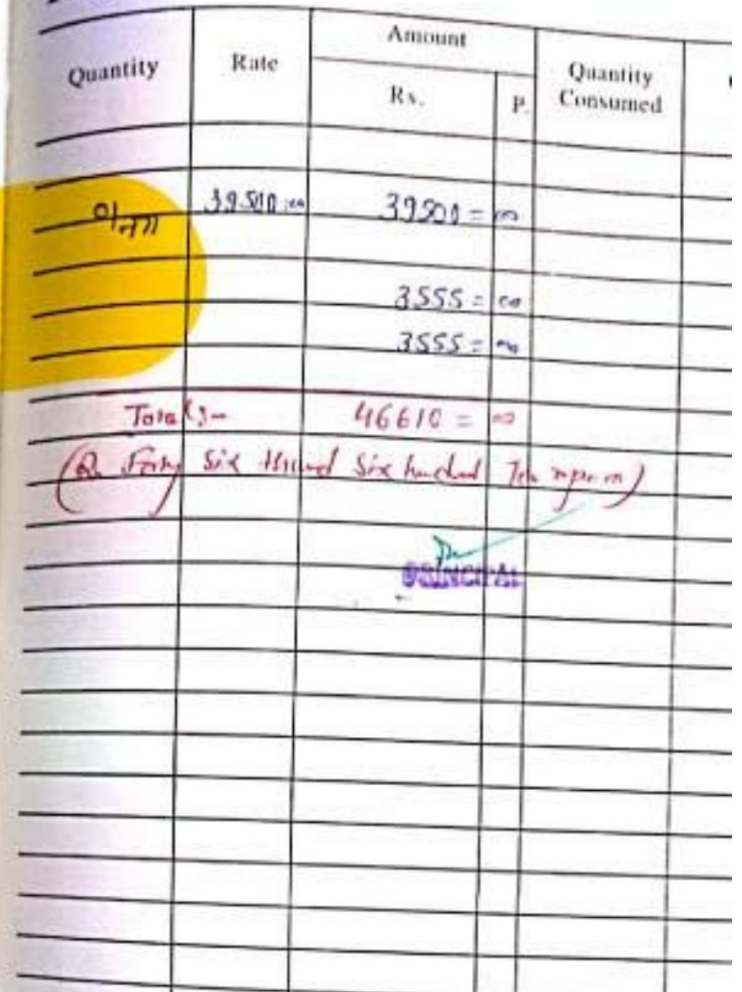 Quantity Rate Amount Quantity Consumed
Rs. P.
39500=00 39500 = 00
3555 = 00
3555 = 00
Total :- 46610 = 00
(Rs Forty Six thousand Six hundred Ten rupees only)
PRINCIPAL